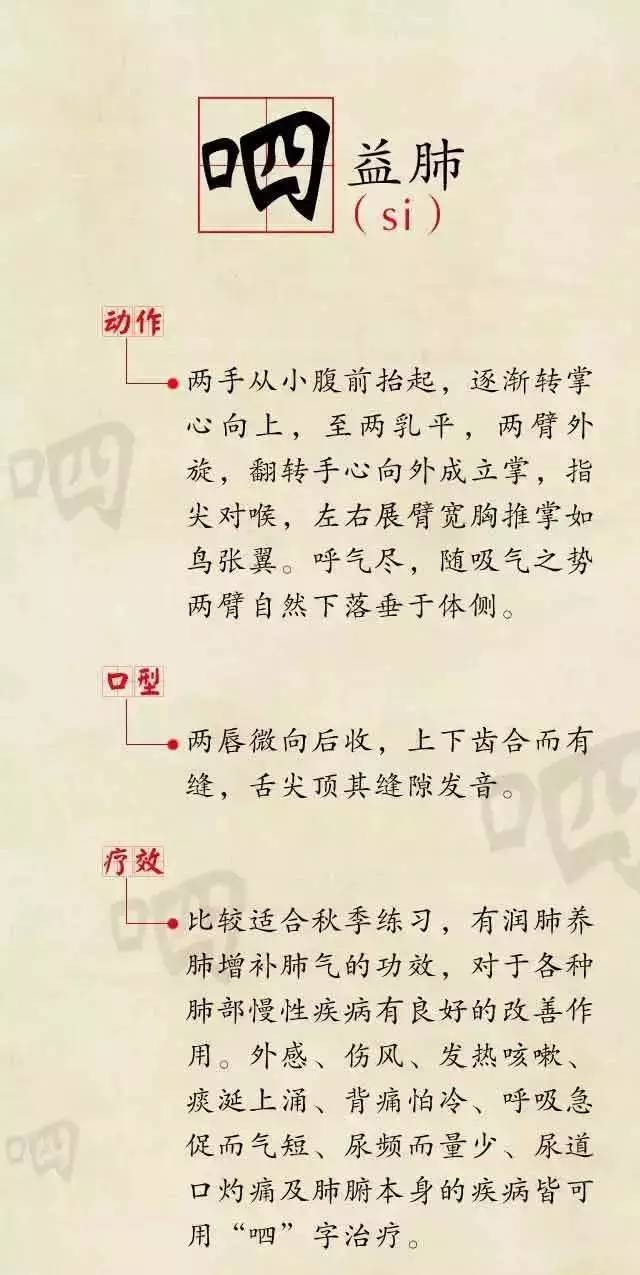 呬 益肺
（si）
动作
两手从小腹前抬起，逐渐转掌
心向上，至两乳平，两臂外
旋，翻转手心向外成立掌，指
尖对喉，左右展臂宽胸推掌如
鸟张翼。呼气尽，随吸气之势
两臂自然下落垂于体侧。
口型
两唇微向后收，上下齿合而有
缝，舌尖顶其缝隙发音。
疗效
比较适合秋季练习，有润肺养
肺增补肺气的功效，对于各种
肺部慢性疾病有良好的改善作
用。外感、伤风、发热咳嗽、
痰涎上涌、背痛怕冷、呼吸急
促而气短、尿频而量少、尿道
口灼痛及肺腑本身的疾病皆可
用“呬”字治疗。
呬
呬
呬
呬